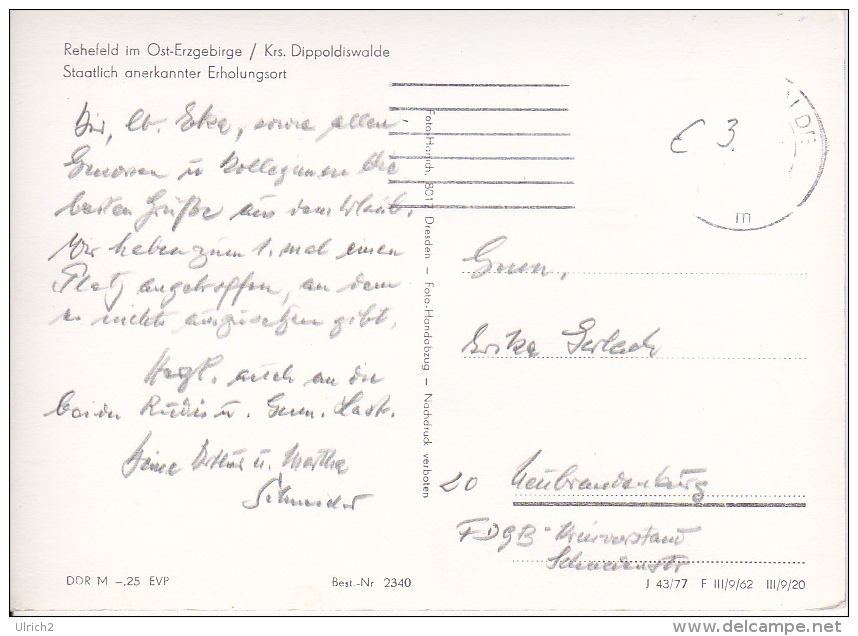 Rehefeld im Ost-Erzgebirge / Krs. Dippoldiswalde
Staatlich anerkannter Erholungsort
Dir, lb. Erka, sowie allen
Genossen u Kolleginnen die
besten Grüße aus dem Urlaub.
Wir haben zum 1. mal einen
Platz angetroffen, an dem
es nichts auszusetzen gibt.
Herzl. auch an die
beiden Rudis u. Genn.
Deine u. Martha
Schneider
Foto-Handabzug — Nachdruck verboten
8017 Dresden
€ 3
m
Genn.
Erika Gerlach
20 Neubrandenburg
FDGB-Kreisvorstand
DDR M –,25 EVP
Best.-Nr. 2340
J 43/77 F III/9/62 III/9/20
©Ulrich2
www.delcampe.net